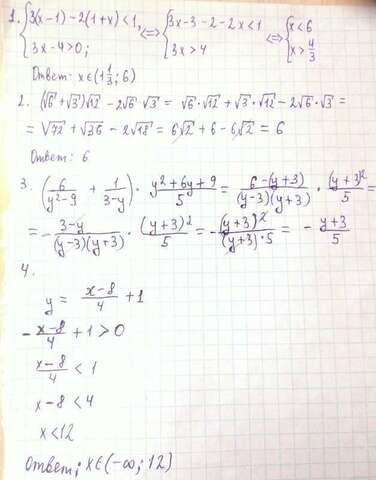 1. {3(x-1)-2(1+x)<1, <=> {3x-3-2-2x<1 <=> {x<6
3x-4>0; 3x>4 x>4/3
Ответ: x∈(1 1/3; 6)
2. (√6+√3)√12 - 2√6·√3 = √6·√12+√3·√12-2√6·√3 =
= √72 + √36 - 2√18 = 6√2 + 6 - 6√2 = 6
Ответ: 6
3. (6/(y²-9) + 1/(3-y)) · (y²+6y+9)/5 = (6-(y+3))/((y-3)(y+3)) · (y+3)²/5 =
= - (3-y)/((y-3)(y+3)) · (y+3)²/5 = - (y+3)²/((y+3)·5) = - (y+3)/5
4.
y = (x-8)/4 + 1
- (x-8)/4 + 1 > 0
(x-8)/4 < 1
x-8 < 4
x < 12
Ответ; x∈(-∞; 12)